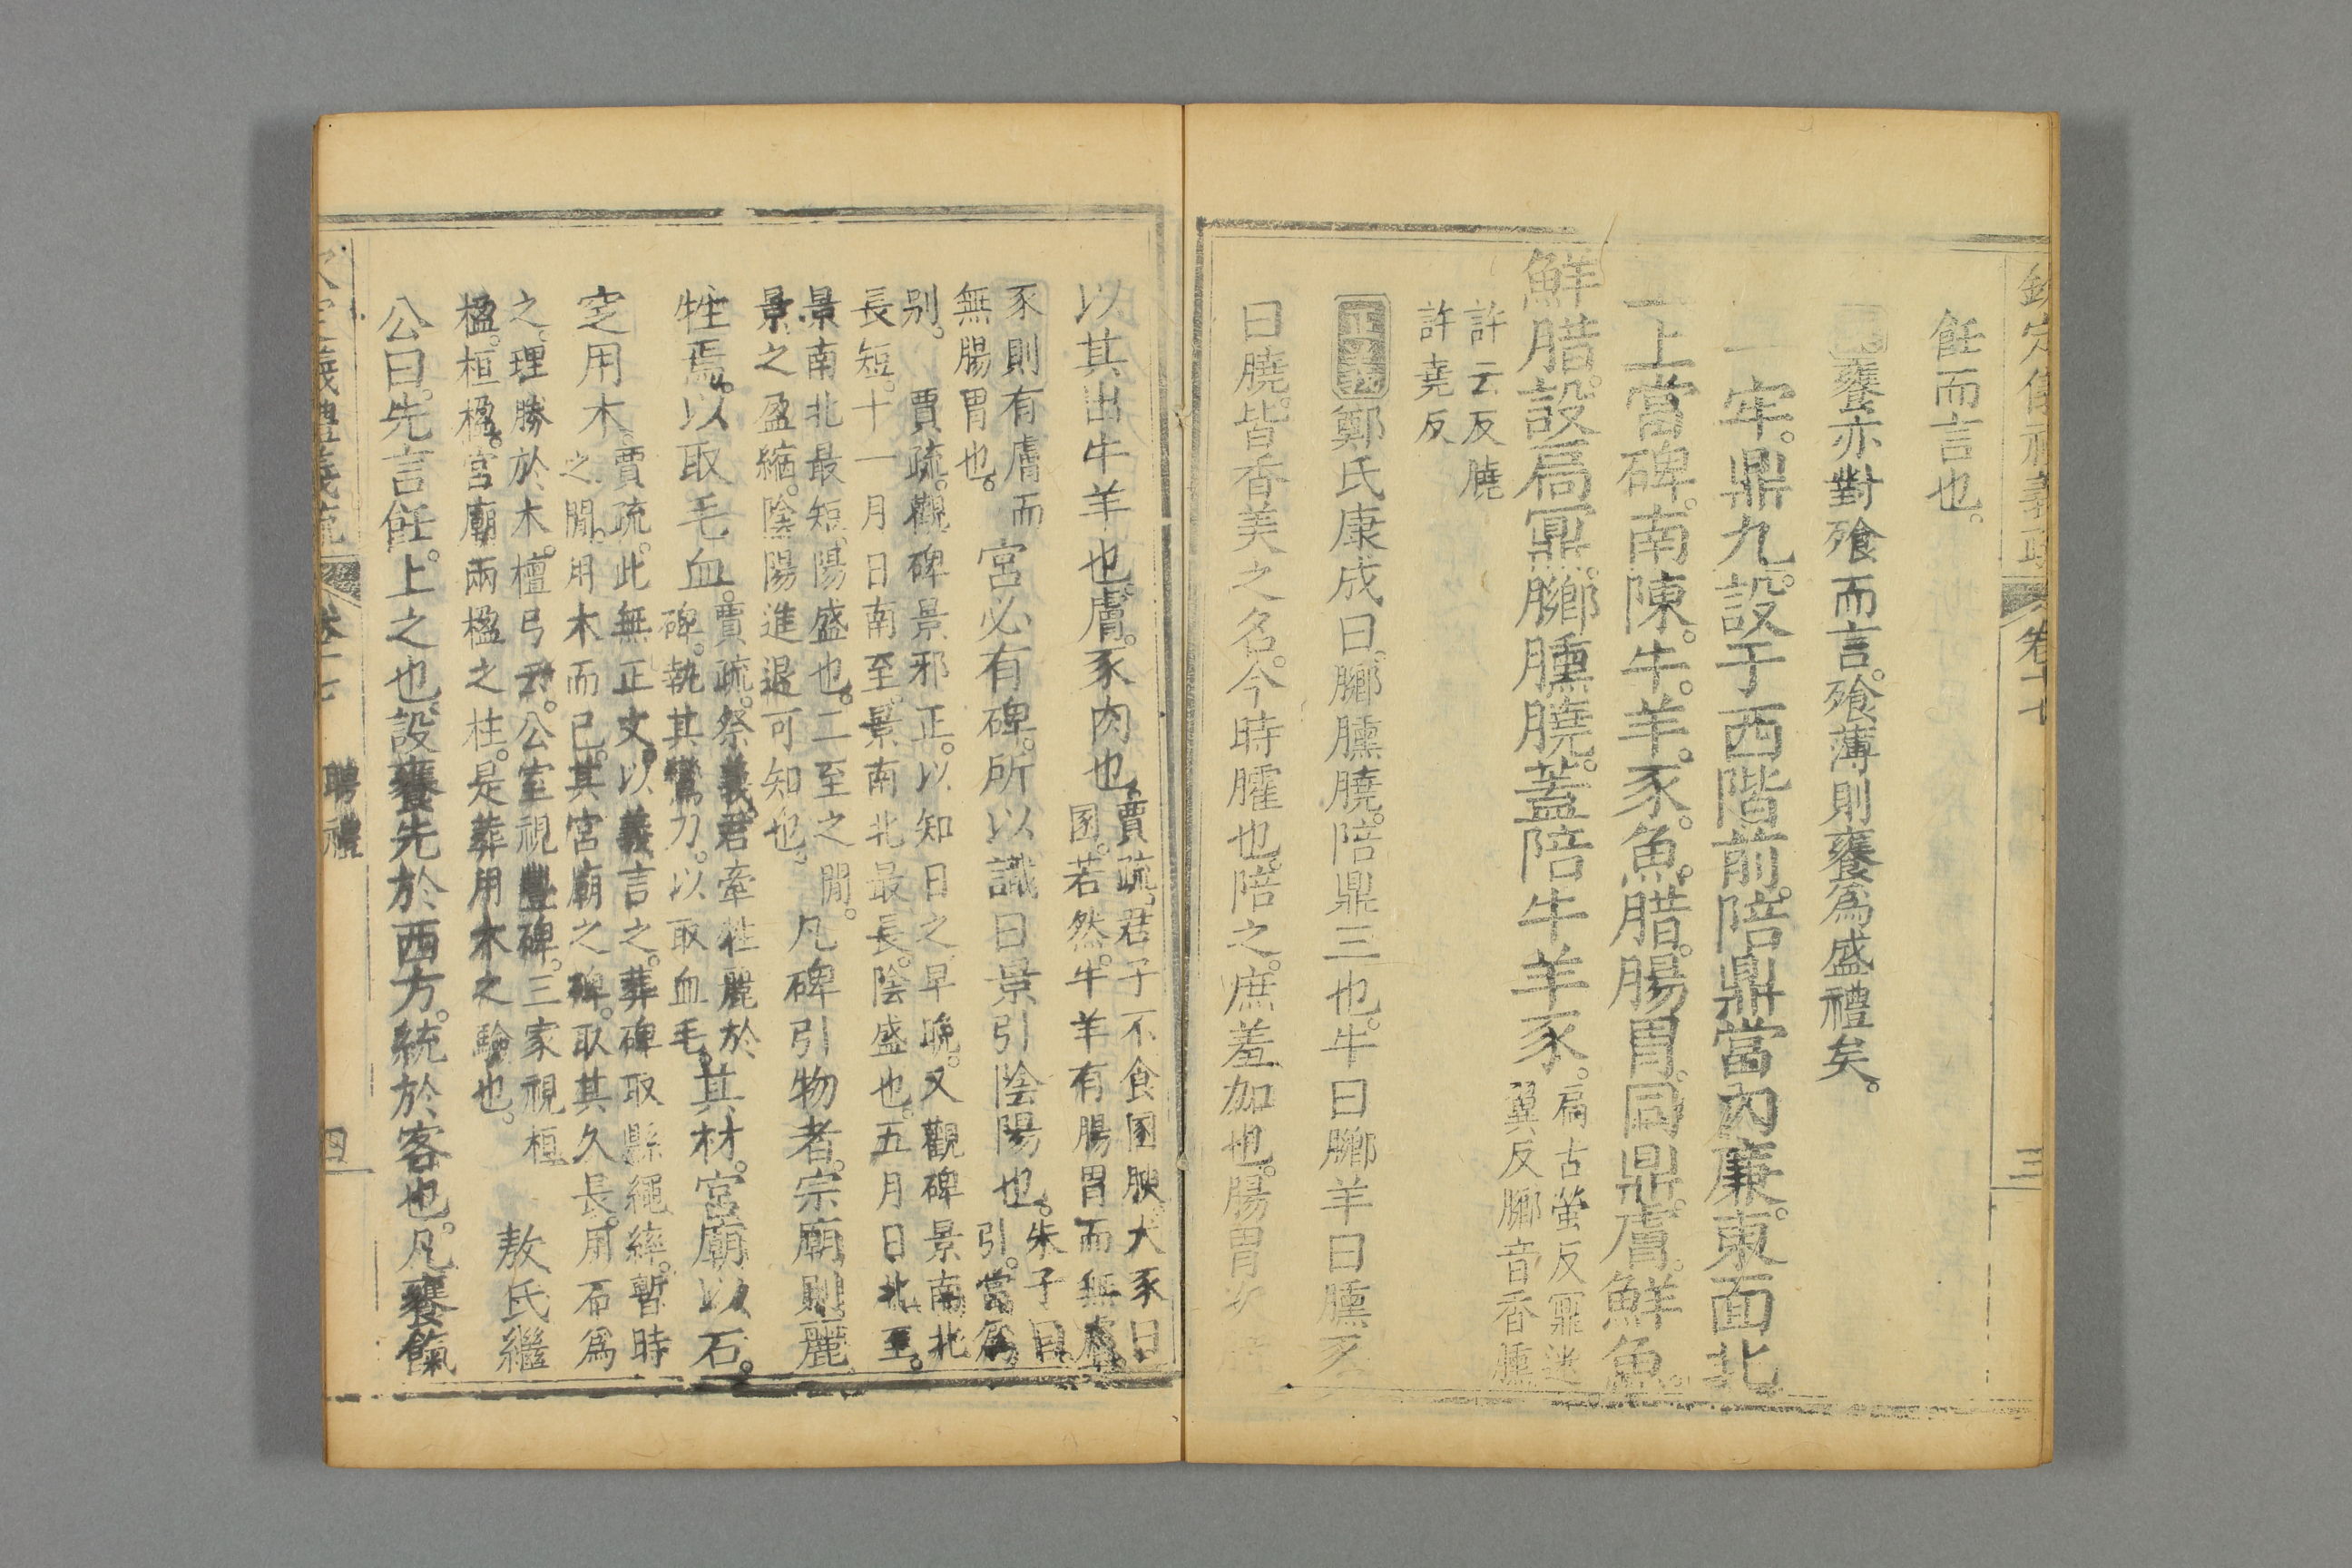 欽定儀禮義疏 卷十七 三
飪而言也。
饔亦對飧而言。飧薄則饔為盛禮矣。
一牢。鼎九。設于西階前。陪鼎當內廉。東面北
上。上當碑。南陳。牛。羊。豕。魚。腊。腸胃。同鼎。膚。鮮魚。
鮮腊。設扃鼏。膷臐膮。蓋陪牛羊豕。
扃古螢反鼏迷
翼反膷音香臐
許云反膮
許堯反
正義鄭氏康成曰。膷臐膮。陪鼎三也。牛曰膷羊曰臐豕
曰膮。皆香美之名。今時臛也。陪之。庶羞加也。腸胃次
以其出牛羊也。膚。豕肉也。
賈疏。君子不食圂腴。犬豕曰
圂。若然。牛羊有腸胃而無膚。
豕則有膚而
無腸胃也。
宮必有碑。所以識日景引陰陽也。
朱子曰。
引。當為
別。
賈疏。觀碑景邪正。以知日之早晚。又觀碑景南北
長短。十一月日南至。景南北最長。陰盛也。五月日北至。
景南北最短。陽盛也。二至之閒。
景之盈縮。陰陽進退可知也。
凡碑引物者。宗廟則麗
牲焉。以取毛血。
賈疏。祭義。君牽牲麗於
碑。執其鸞刀。以取血毛。
其材。宮廟以石。
窆用木。
賈疏。此無正文。以義言之。葬碑取縣繩繂。暫時
之閒。用木而已。其宮廟之碑。取其久長。用石為
之。理勝於木。檀弓云。公室視豐碑。三家視桓
楹。桓楹。宮廟兩楹之柱。是葬用木之驗也。
敖氏繼
公曰。先言飪。上之也。設饔先於西方。統於客也。凡饔餼
聘禮 四